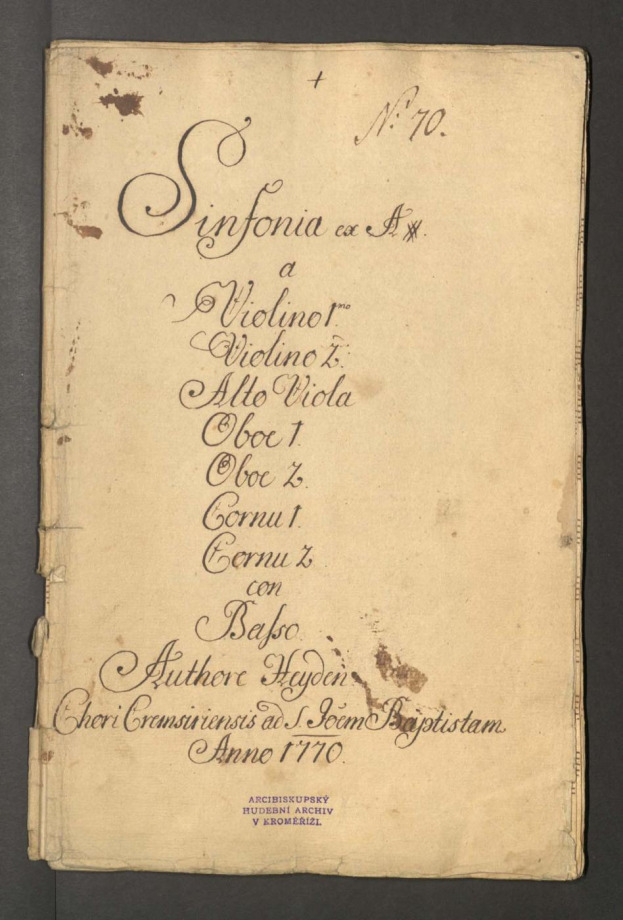 +
No. 70.
Sinfonia ex A♯.
a
Violino 1mo
Violino 2.
Alto Viola
Oboe 1.
Oboe 2.
Cornu 1.
Cornu 2
con
Basso.
Authore Heyden
Chori Cremsiriensis ad S. Joēm Baptistam
Anno 1770.
ARCIBISKUPSKÝ
HUDEBNÍ ARCHIV
V KROMĚŘÍŽI.